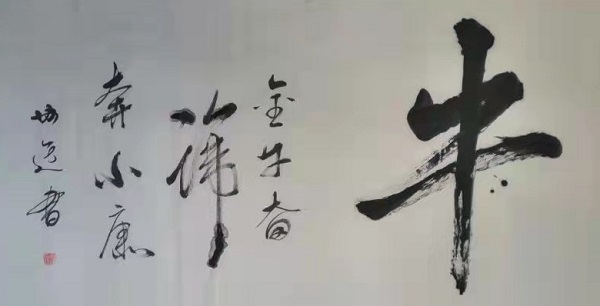 牛
金牛奋
蹄
奔小康
書